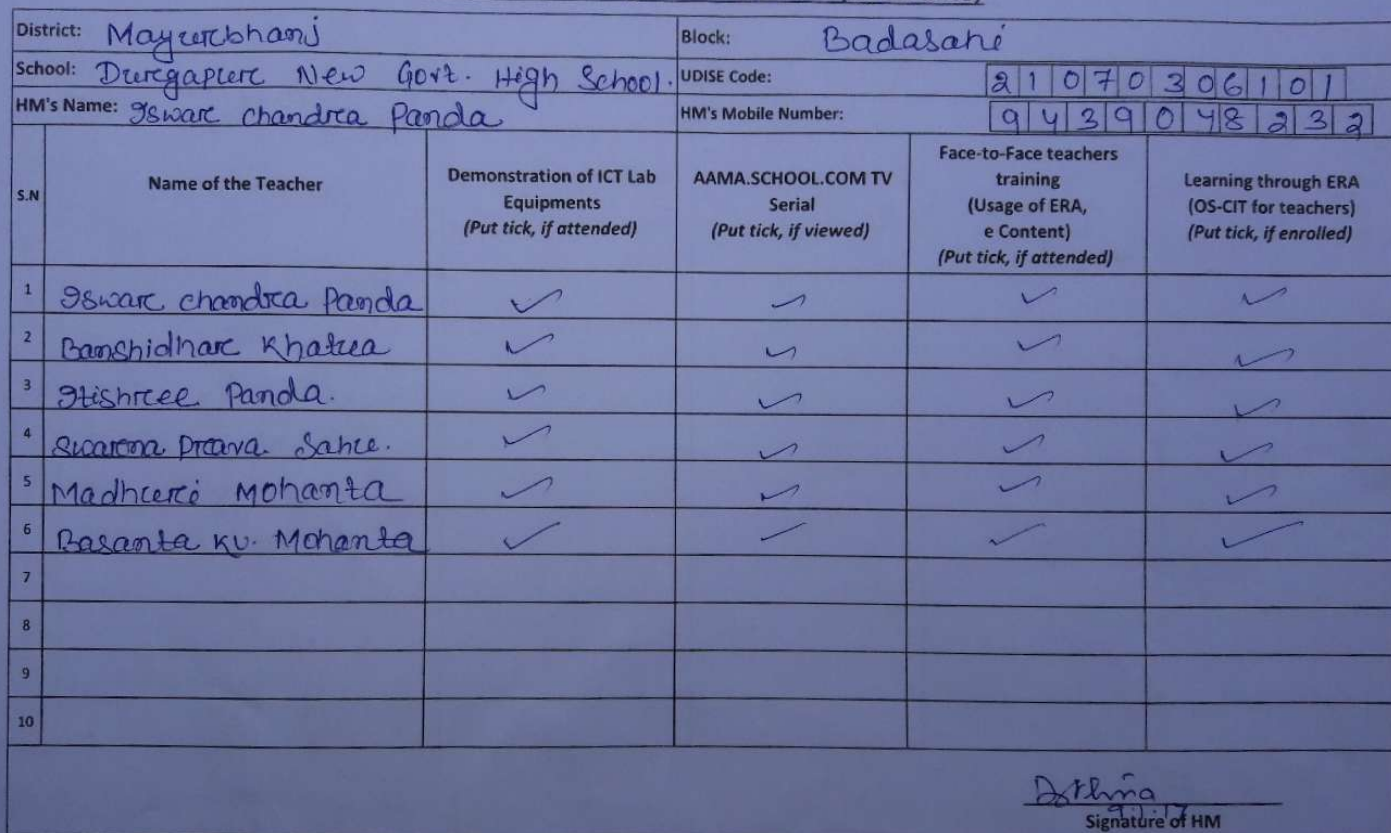 District: Mayurbhanj Block: Badasahi
School: Durgapur New Govt. High School. UDISE Code: 21070306101
HM's Name: Iswar chandra Panda HM's Mobile Number: 9439048232
S.N Name of the Teacher Demonstration of ICT Lab Equipments (Put tick, if attended) AAMA.SCHOOL.COM TV Serial (Put tick, if viewed) Face-to-Face teachers training (Usage of ERA, e Content) (Put tick, if attended) Learning through ERA (OS-CIT for teachers) (Put tick, if enrolled)
1 Iswar chandra Panda ✓ ✓ ✓ ✓
2 Banshidhar Khatua ✓ ✓ ✓ ✓
3 Itishree Panda. ✓ ✓ ✓ ✓
4 Swarna Prava Sahu. ✓ ✓ ✓ ✓
5 Madhuri Mohanta ✓ ✓ ✓ ✓
6 Basanta Ku. Mohanta ✓ ✓ ✓ ✓
7
8
9
10
Signature of HM